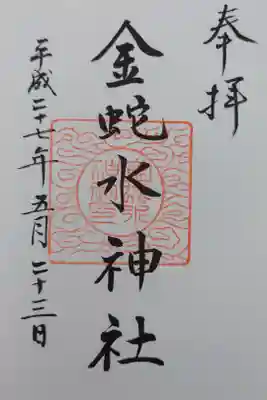 奉拝
金蛇水神社
平成二十七年五月二十三日